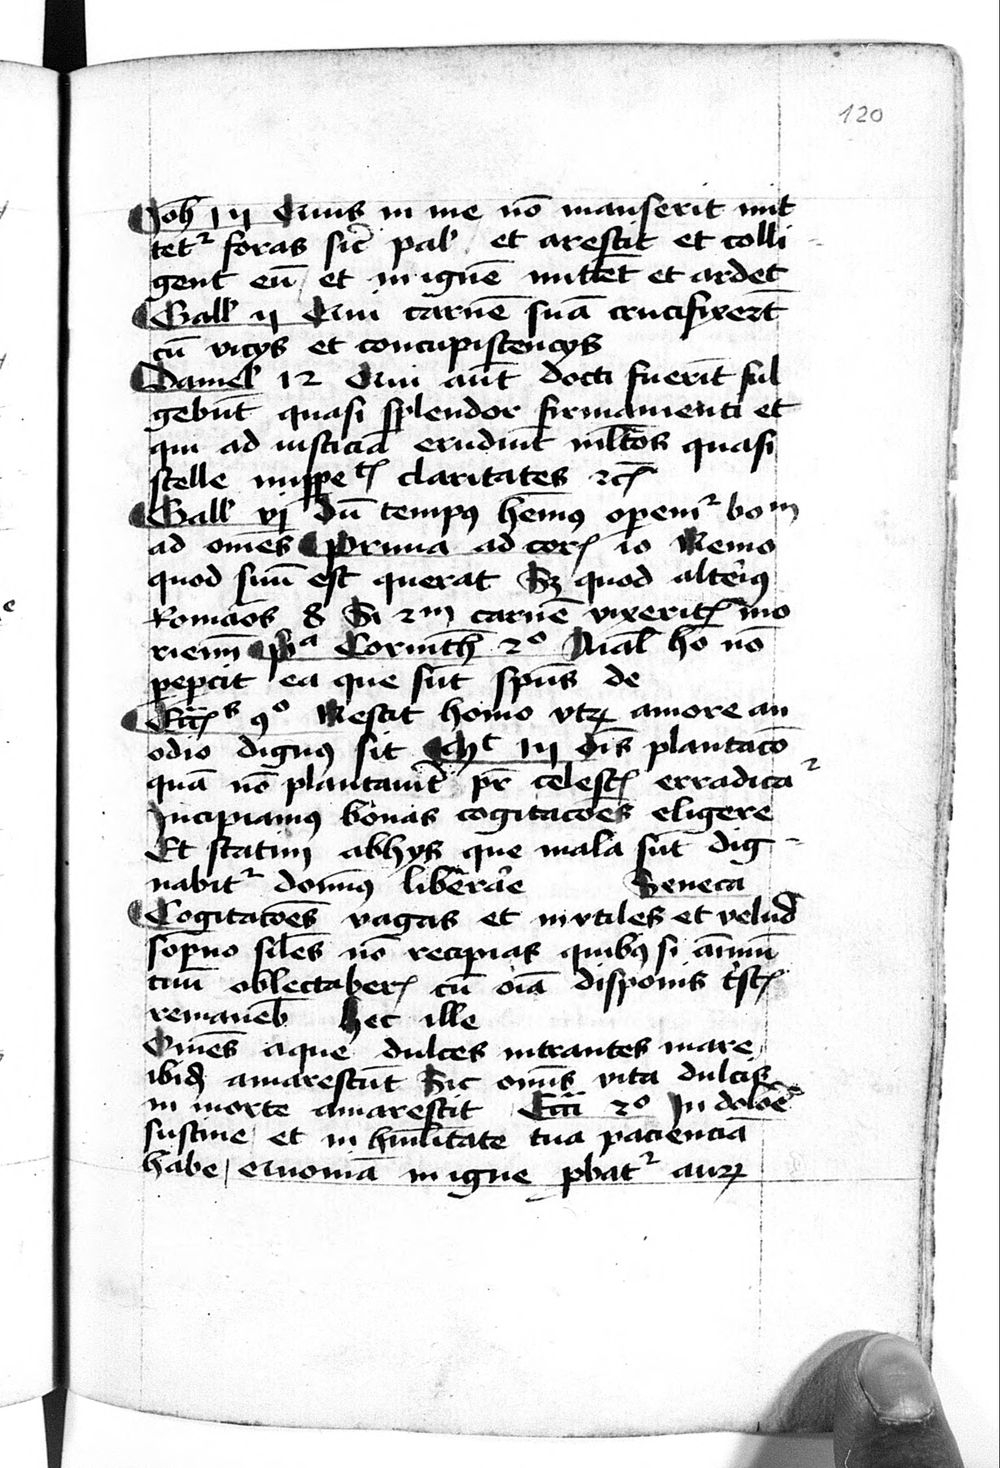 120
Joh̄ 1ij Quis in me nō manserit mit
tet² foras sic̄ pal' et arescit et colli
gent eū et in ignē mittēt et ardēt
Gall' ij Qui carnē suā crucifixer̄t
cū vicijs et concupiscencijs
Daniel' 12 Qui aūt docti fuerīt ful
gebūt quasi splendor firmamenti et
qui ad iusticiā erudiūt ml̄tos quasi
stelle claritates ⁊c̄
Gall' vj Dū tempꝯ hēmꝯ operem² boᵐ
ad om̄es Prima ad cor̄ 10 Nemo
quod suū est querat Sꝫ quod alteriꝯ
Romāos 8 Si 2ᵐ carnē vixerit̄ mo
riemī pᵃ Corinth̄ 2º Aīal̄ hō nō
percipit ea que sūt spūs de
9º Nescit homo vtꝝ amore an
odio dignꝯ sit Mᵗ 1ij Oīs plantacō
quā nō plantauit pr̄ celest̄ erradica²
Incipiamꝯ bonas cogitacōes eligere
Et statim abhijs que mala sūt dig
nabit² domīꝯ liberar̄e Seneca
Cogitatōes vagas et invtiles et velud
sopno sil̄es nō recipias quibꝯ si aīmū
tuū oblectaber̄ cū oīa disponis tˢt̄
remaneb̄ Hec ille
Om̄es aque dulces intrantes mare
ibiđ amarescūt Sic om̄is vita dulcis
in morte amarescit Ecc̄i 2º In dolōe
sustine et in hūil̄itate tua pacienciā
habe / quoniā in igne ꝓbat² auꝝ